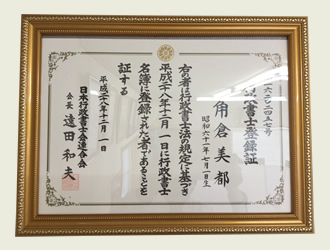 行政書士登録証
角倉美都
昭和六十一年七月一日生
右の者は行政書士法の規定に基づき
平成二八年十二月一日に行政書士
名簿に登録された者であることを
証する
平成二八年十二月一日
日本行政書士会連合会
会長 遠田和夫